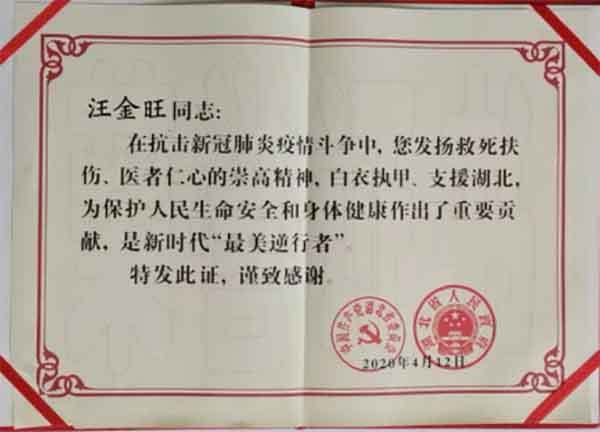 汪金旺同志:
在抗击新冠肺炎疫情斗争中,您发扬救死扶
伤、医者仁心的崇高精神,白衣执甲、支援湖北,
为保护人民生命安全和身体健康作出了重要贡
献,是新时代“最美逆行者”。
特发此证,谨致感谢。
中国共产党湖北省委员会
湖北省人民政府
2020年4月12日